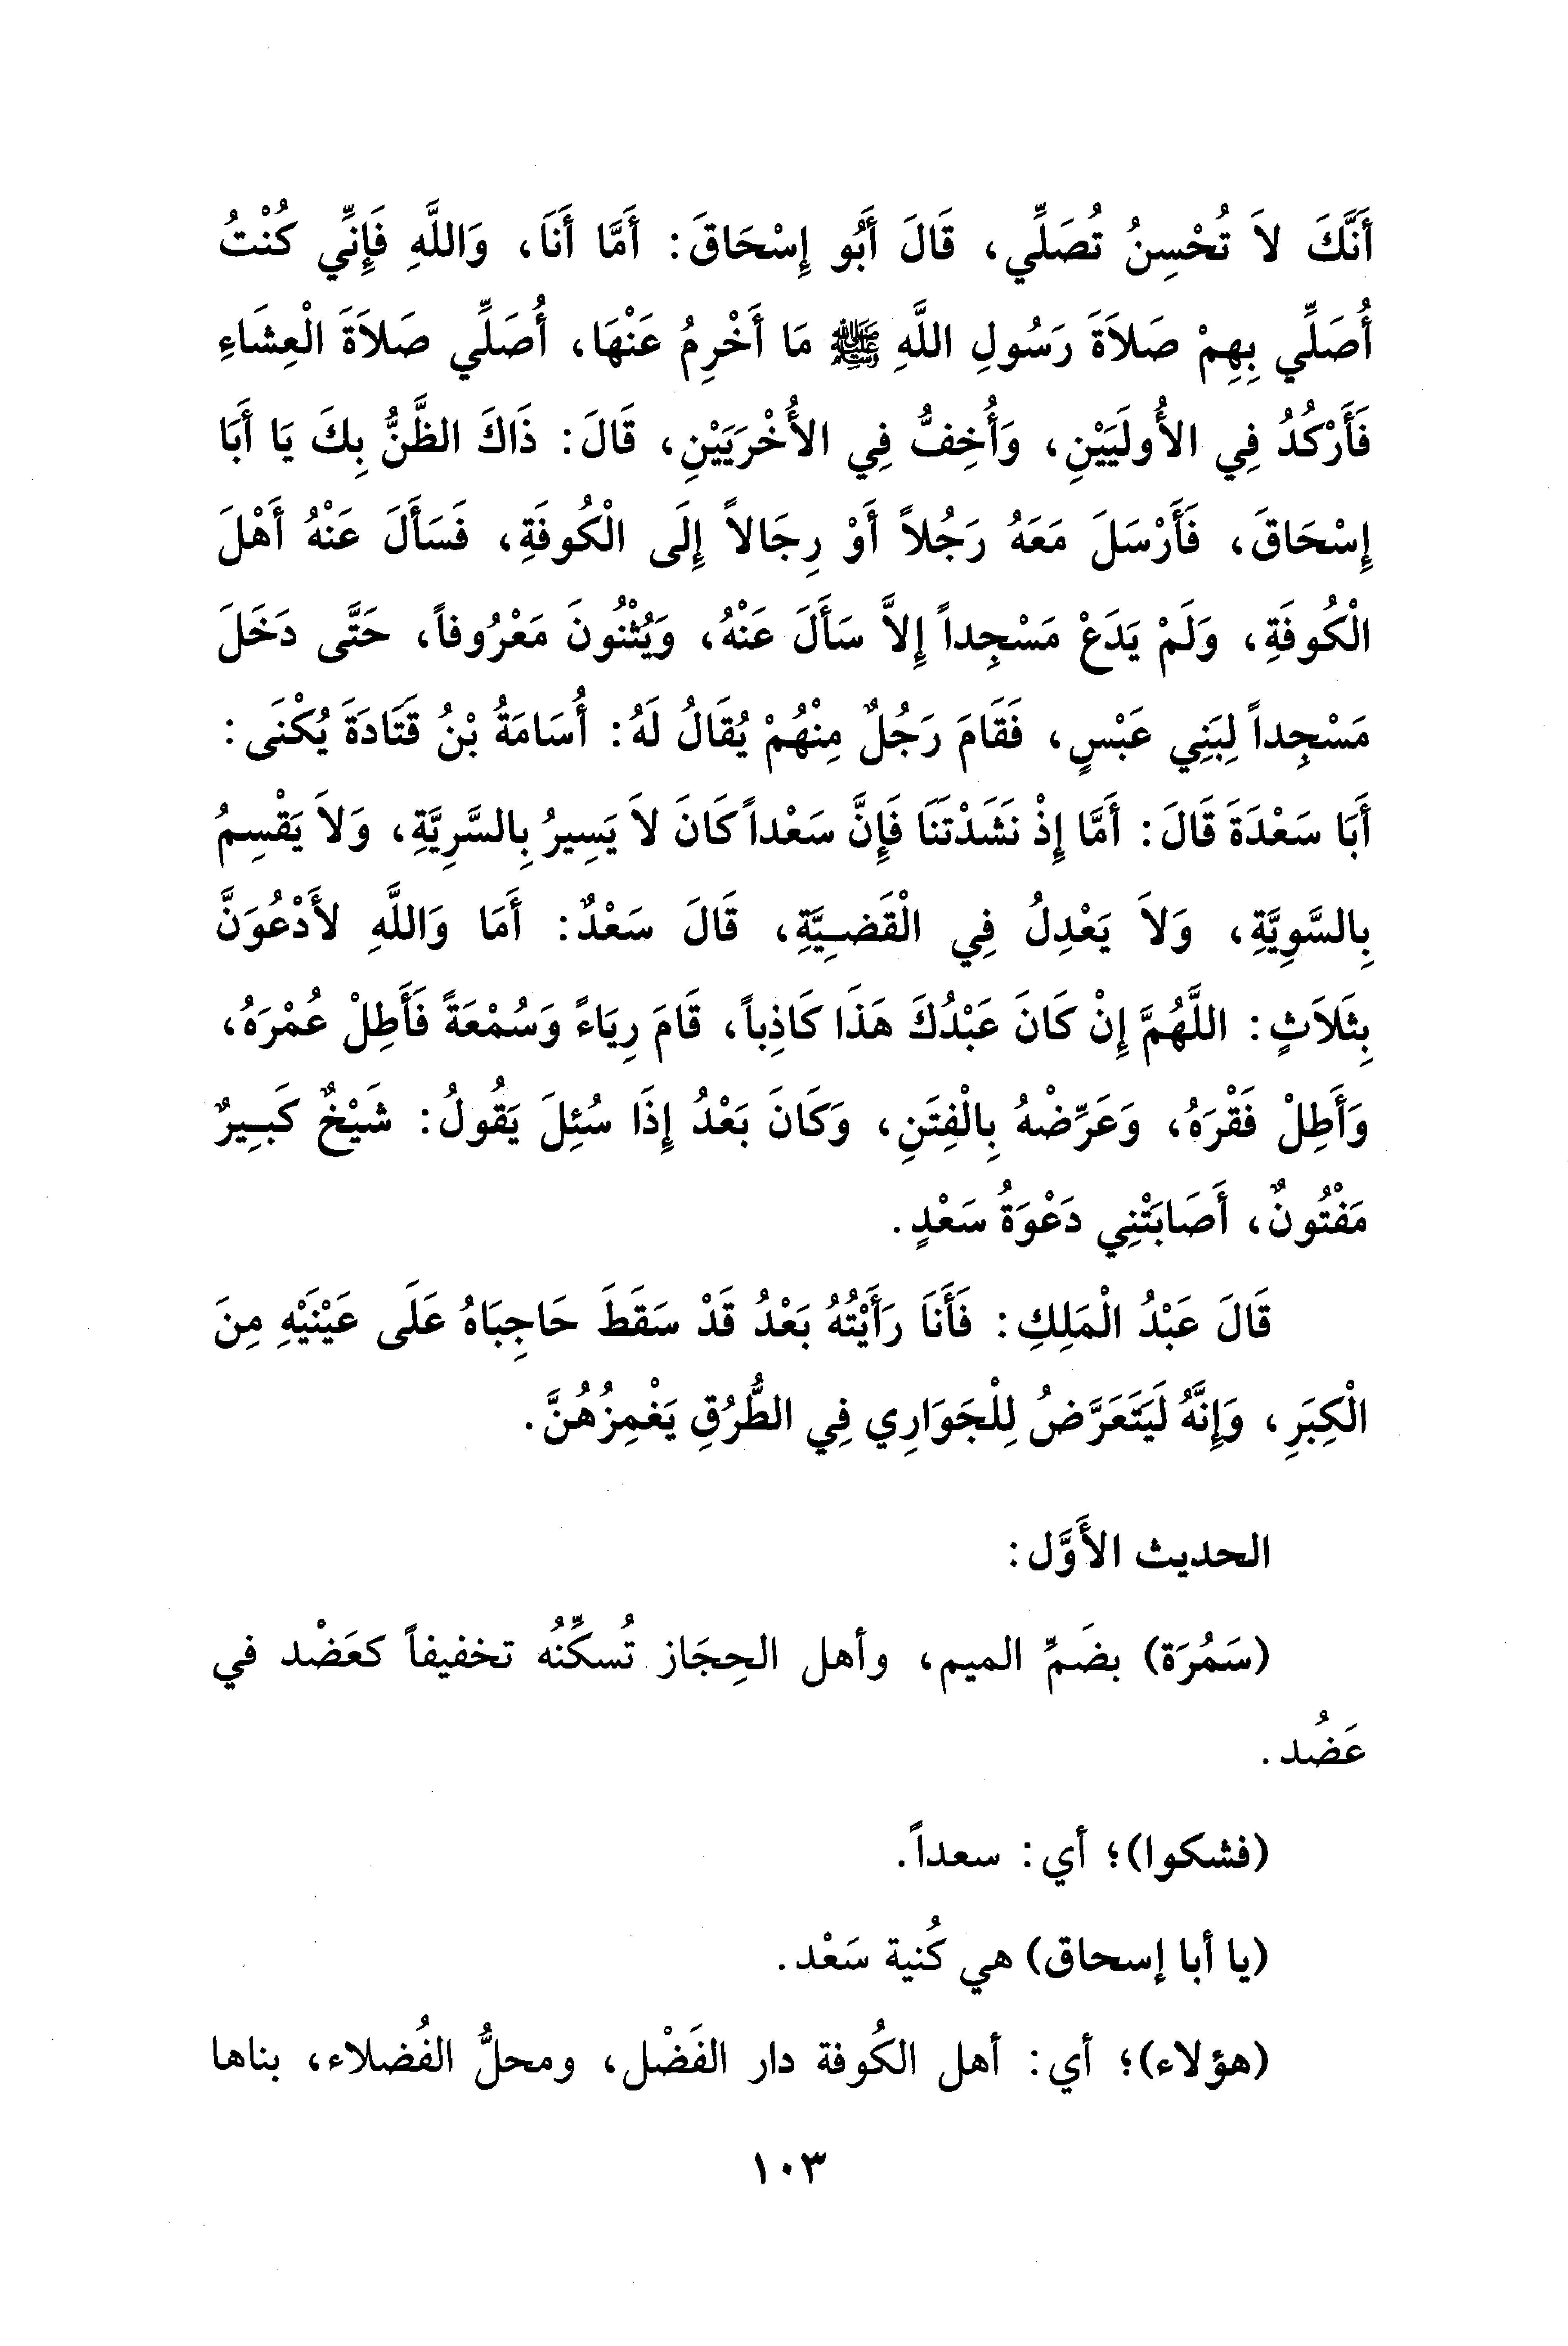 أَنَّكَ لاَ تُحْسِنُ تُصَلِّي، قَالَ أَبُو إِسْحَاقَ: أَمَّا أَنَا، وَاللَّهِ فَإِنِّي كُنْتُ
أُصَلِّي بِهِمْ صَلاَةَ رَسُولِ اللَّهِ ﷺ مَا أَخْرِمُ عَنْهَا، أُصَلِّي صَلاَةَ الْعِشَاءِ
فَأَرْكُدُ فِي الأُولَيَيْنِ، وَأُخِفُّ فِي الأُخْرَيَيْنِ، قَالَ: ذَاكَ الظَّنُّ بِكَ يَا أَبَا
إِسْحَاقَ، فَأَرْسَلَ مَعَهُ رَجُلاً أَوْ رِجَالاً إِلَى الْكُوفَةِ، فَسَأَلَ عَنْهُ أَهْلَ
الْكُوفَةِ، وَلَمْ يَدَعْ مَسْجِداً إِلاَّ سَأَلَ عَنْهُ، وَيُثْنُونَ مَعْرُوفاً، حَتَّى دَخَلَ
مَسْجِداً لِبَنِي عَبْسٍ، فَقَامَ رَجُلٌ مِنْهُمْ يُقَالُ لَهُ: أُسَامَةُ بْنُ قَتَادَةَ يُكْنَى:
أَبَا سَعْدَةَ قَالَ: أَمَّا إِذْ نَشَدْتَنَا فَإِنَّ سَعْداً كَانَ لاَ يَسِيرُ بِالسَّرِيَّةِ، وَلاَ يَقْسِمُ
بِالسَّوِيَّةِ، وَلاَ يَعْدِلُ فِي الْقَضِيَّةِ، قَالَ سَعْدٌ: أَمَا وَاللَّهِ لأَدْعُوَنَّ
بِثَلاَثٍ: اللَّهُمَّ إِنْ كَانَ عَبْدُكَ هَذَا كَاذِباً، قَامَ رِيَاءً وَسُمْعَةً فَأَطِلْ عُمْرَهُ،
وَأَطِلْ فَقْرَهُ، وَعَرِّضْهُ بِالْفِتَنِ، وَكَانَ بَعْدُ إِذَا سُئِلَ يَقُولُ: شَيْخٌ كَبِيرٌ
مَفْتُونٌ، أَصَابَتْنِي دَعْوَةُ سَعْدٍ.
قَالَ عَبْدُ الْمَلِكِ: فَأَنَا رَأَيْتُهُ بَعْدُ قَدْ سَقَطَ حَاجِبَاهُ عَلَى عَيْنَيْهِ مِنَ
الْكِبَرِ، وَإِنَّهُ لَيَتَعَرَّضُ لِلْجَوَارِي فِي الطُّرُقِ يَغْمِزُهُنَّ.
الحديث الأَوَّل:
(سَمُرَة) بضَمِّ الميم، وأهل الحِجَاز تُسكِّنُه تخفيفاً كعَضْد في
عَضُد.
(فشكوا)؛ أي: سعداً.
(يا أبا إسحاق) هي كُنية سَعْد.
(هؤلاء)؛ أي: أهل الكُوفة دار الفَضْل، ومحلُّ الفُضلاء، بناها
١٠٣